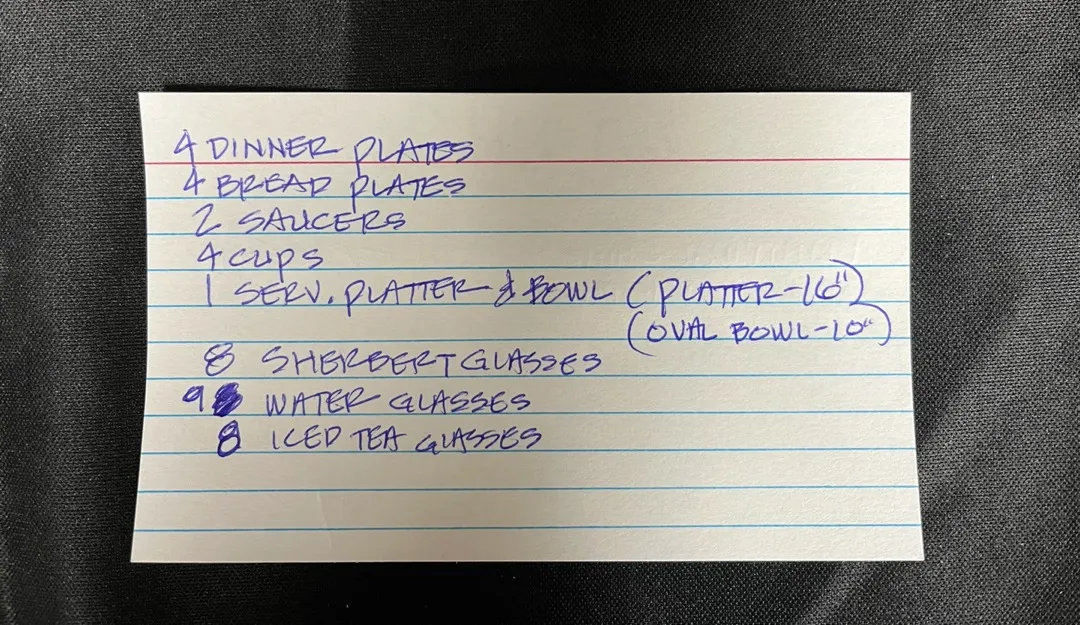 4 DINNER PLATES
4 BREAD PLATES
2 SAUCERS
4 CUPS
1 SERV. PLATTER & BOWL (PLATTER-16")
(OVAL BOWL-10")
8 SHERBERT GLASSES
9 WATER GLASSES
8 ICED TEA GLASSES